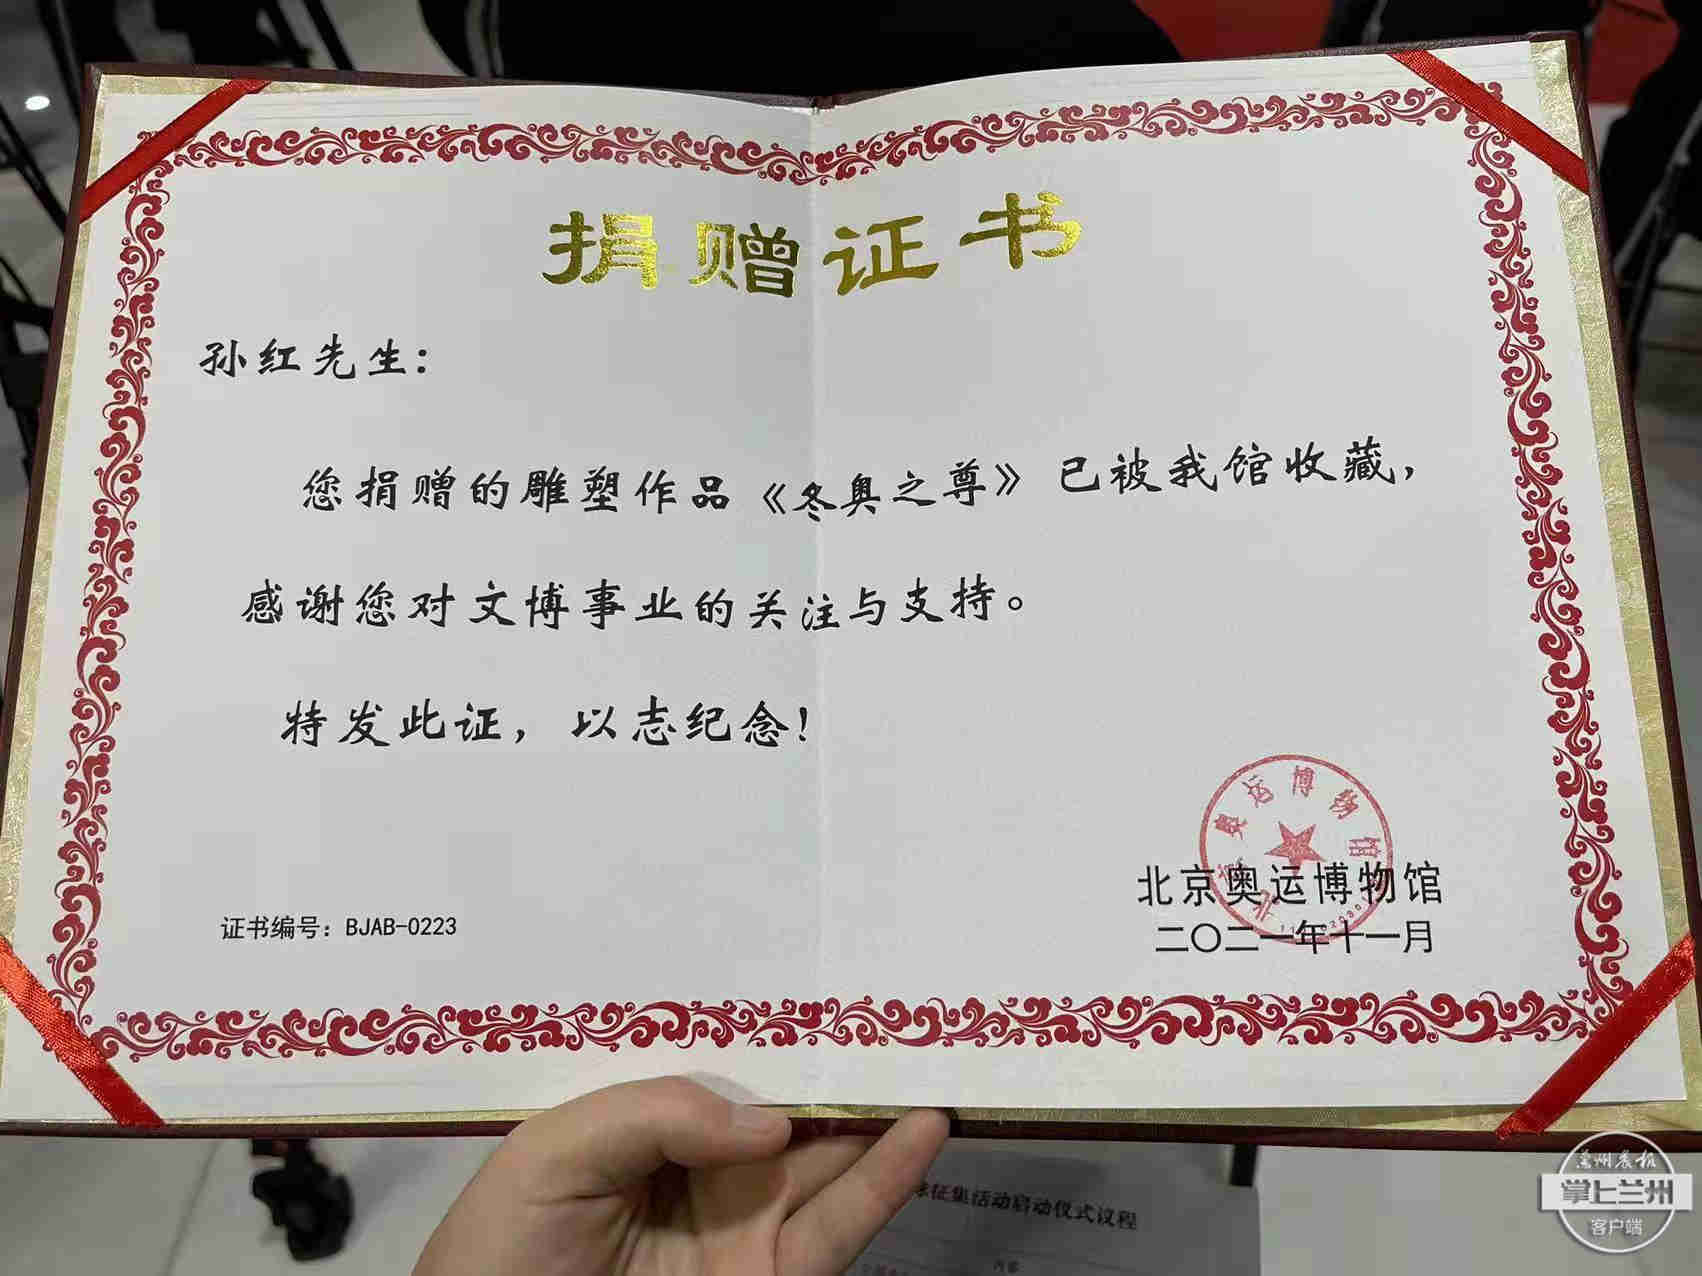 捐赠证书
孙红先生：
您捐赠的雕塑作品《冬奥之尊》已被我馆收藏，
感谢您对文博事业的关注与支持。
特发此证，以志纪念！
北京奥运博物馆
证书编号：BJAB-0223
北京奥运博物馆
二〇二一年十一月
征集活动启动仪式议程
内容
兰州晨报
掌上兰州
客户端